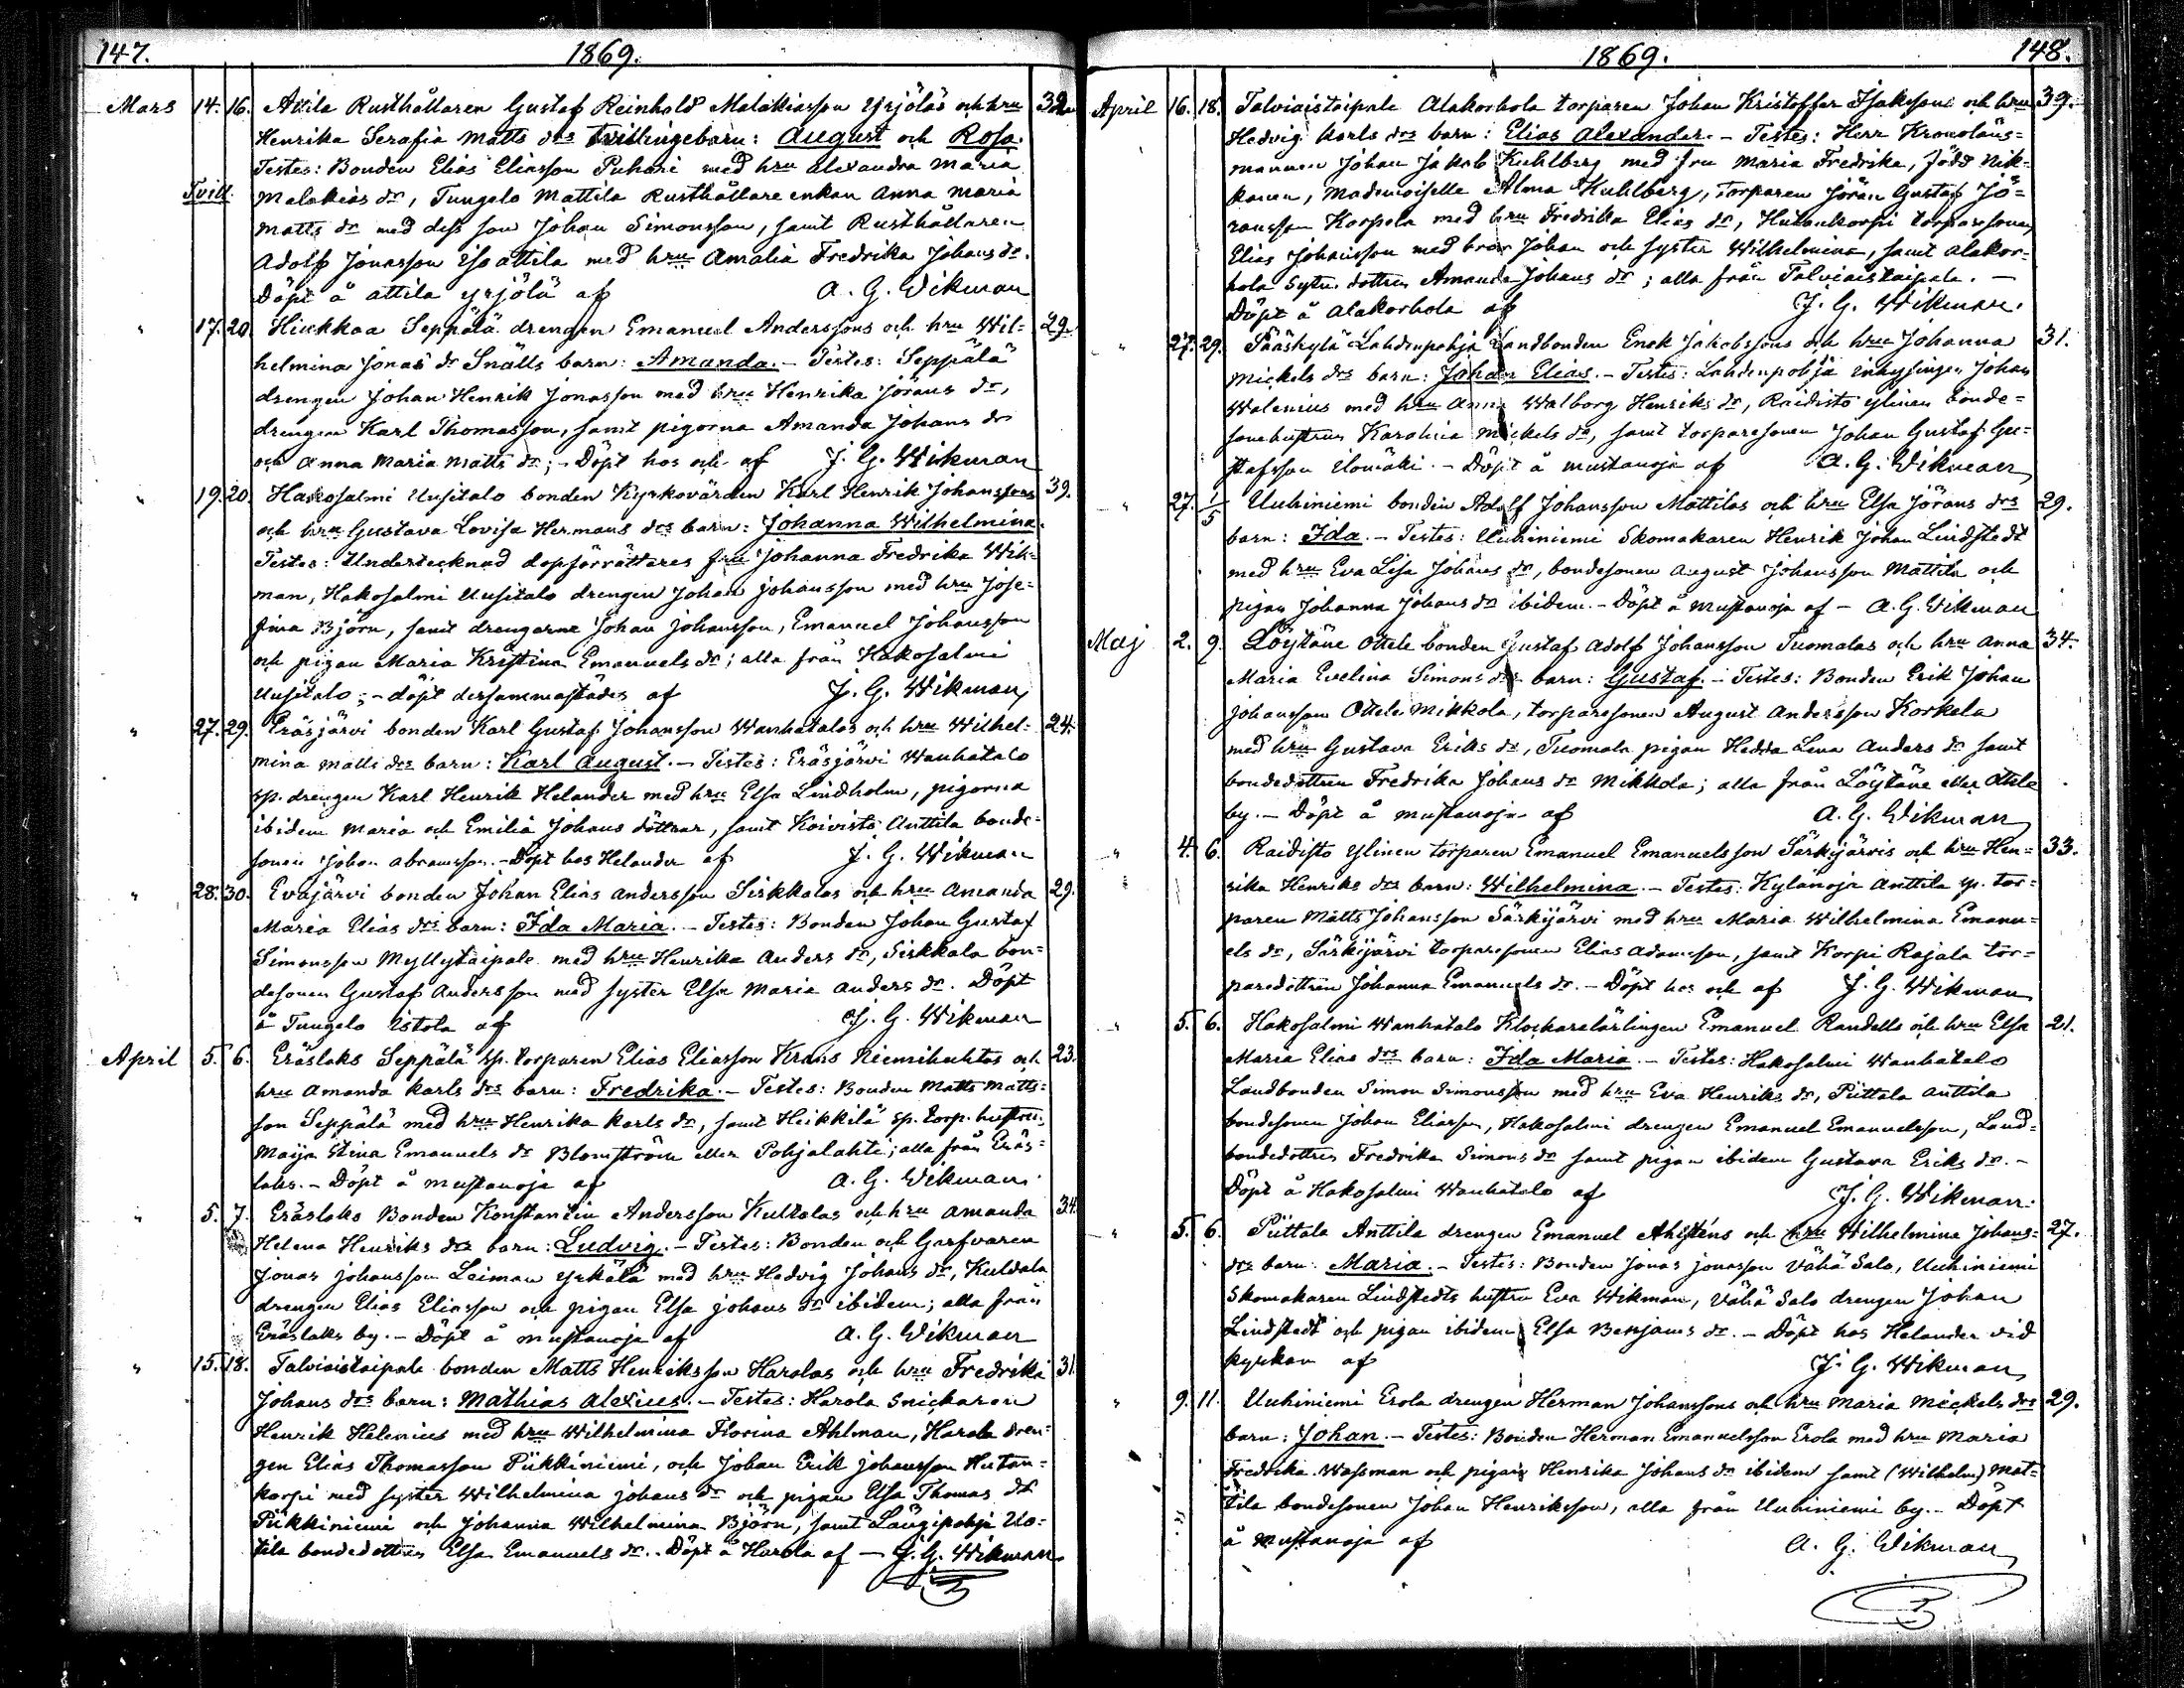 147. 1869.
Mars 14. 16. Attila Rusthållaren Gustaf Reinhold Malakiasson Yrjöläs och hru 32.
Henrika Serafia Matts drs tvillingebarn: August och Rosa.
Testes: Bonden Elias Eliasson Puhari med hru Alexandra Maria
Tvill. Malakias dr, Tungelo Mattila Rusthållare enkan Anna Maria
Matts dr med dess son Johan Simonsson, samt Rusthållaren
Adolf Jonasson Iso Attila med hru Amalia Fredrika Johans dr.
Döpt å Attila Yrjölä af A. G. Wikman
" 17. 20. Hiukkaa Seppälä drengen Emanuel Anderssons och hru Wil= 29.
helmina Jonas dr Snälls barn: Amanda. – Testes: Seppälä
drengen Johan Henrik Jonasson med hru Henrika Jörans dr,
drengen Karl Thomasson, samt pigorna Amanda Johans dr
och Anna Maria Matts dr; – Döpt hos och af J. G. Wikman
" 19. 20. Hakosalmi Uusitalo bonden Kyrkovärden Karl Henrik Johanssons 39.
och hru Gustava Lovisa Hermans drs barn: Johanna Wilhelmina.
Testes: Undertecknad dopförrättares fru Johanna Fredrika Wik=
man, Hakosalmi Uusitalo drengen Johan Johansson med hru Jose=
fina Björn, samt drengarne Johan Johansson, Emanuel Johansson
och pigan Maria Kristina Emanuels dr; alla från Hakosalmi
Uusitalo; – döpt dersammastädes af J. G. Wikman
" 27. 29. Eräsjärvi bonden Karl Gustaf Johansson Wanhatalos och hru Wilhel= 24.
mina Matts drs barn: Karl August. – Testes: Eräsjärvi Wanhatalo
sp. drengen Karl Henrik Helander med hru Elsa Lindholm, pigorna
ibidem Maria och Emilia Johans döttrar, samt Koivisto Anttila bonde=
sonen Johan Abramsson. – Döpt hos Helander af J. G. Wikman
" 28. 30. Eväjärvi bonden Johan Elias Andersson Sirkkalas och hru Amanda 29.
Maria Elias drs barn: Ida Maria. – Testes: Bonden Johan Gustaf
Simonsson Myllytaipale med hru Henrika Anders dr, Sirkkala bon=
desonen Gustaf Andersson med syster Elsa Maria Anders dr. Döpt
å Tungelo Istola af J. G. Wikman
April 5. 6. Eräslaks Seppälä sp. torparen Elias Eliasson Krans Niemihuhtas och 23.
hru Amanda Karls drs barn: Fredrika. – Testes: Bonden Matts Matts=
son Seppälä med hru Henrika Karls dr, samt Heikkilä sp. torp. hustru
Maija Stina Emanuels dr Blomström eller Pohjalahti; alla från Eräs=
laks. – Döpt å Mustanoja af A. G. Wikman.
" 5. 7. Eräslaks Bonden Konstantin Andersson Kultalas och hru Amanda 34.
Helena Henriks drs barn: Ludvig. – Testes: Bonden och Garfvaren
Jonas Johansson Leiman Yrkälä med hru Hedvig Johans dr, Kuldala
drengen Elias Eliasson och pigan Elsa Johans dr ibidem; alla från
Eräslaks by. – Döpt å Mustanoja af A. G. Wikman
" 15. 18. Talviaistaipale bonden Matts Henriksson Harolas och hru Fredrika 31.
Johans drs barn: Mathias Alexius. – Testes: Harola Snickaren
Henrik Helenius med hru Wilhelmina Florina Ahlman, Harola dren=
gen Elias Thomasson Pikkiniemi, och Johan Erik Johansson Hutan=
korpi med syster Wilhelmina Johans dr och pigan Elsa Thomas dr
Pikkiniemi och Johanna Wilhelmina Björn, samt Längipohja Uo=
tila bondedottren Elsa Emanuels dr. Döpt å Harola af – J. G. Wikman
1869. 148.
April 16. 18. Talviaistaipale Alakorhola torparen Johan Kristoffer Isakssons och hru 39.
Hedvig Karls drs barn: Elias Alexander. – Testes: Herr Kronoläns=
mannen Johan Jakob Kuhlberg med fru Maria Fredrika, född Nik=
kanen, Mademoiselle Alma Kuhlberg, Torparen Jöran Gustaf Jö=
ransson Korpela med hru Fredrika Elias dr, Hutankorpi torparsonen
Elias Johansson med bror Johan och syster Wilhelmina, samt Alakor=
hola Sytn. dottren Amanda Johans dr; alla från Talviaistaipale. –
Döpt å Alakorhola af J. G. Wikman.
" 27. 29. Pääskylä Lahdenpohja Landbonden Enok Jakobssons och hru Johanna 31.
Mickels drs barn: Johan Elias. – Testes: Lahdenpohja inhysingen Johan
Walenius med hru Anna Walborg Henriks dr, Raidisto Ylinen bonde=
sonehustrun Karolina Mickels dr, samt torparesonen Johan Gustaf Gu=
stafsson Ilomäki. – Döpt å Mustanoja af A. G. Wikman
" 27. 1/5 Uuhiniemi bonden Adolf Johansson Mattilas och hru Elsa Jörans drs 29.
barn: Ida. – Testes: Uuhiniemi Skomakaren Henrik Johan Lindstedt
med hru Eva Lisa Johans dr, bondesonen August Johansson Mattila och
pigan Johanna Johans dr ibidem. – Döpt å Mustanoja af – A. G. Wikman
Maj 2. 9. Löytäne Ottele bonden Gustaf Adolf Johansson Tuomalas och hru Anna 34.
Maria Evelina Simons drs barn: Gustaf. – Testes: Bonden Erik Johan
Johansson Ottele Mikkola, torparesonen August Andersson Korkela
med hru Gustava Eriks dr, Tuomala pigan Hedda Lena Anders dr samt
bondedottren Fredrika Johans dr Mikkola; alla från Löytäne eller Ottele
by. – Döpt å Mustanoja af A. G. Wikman
" 4. 6. Raidisto Ylinen torparen Emanuel Emanuelsson Särkijärvis och hru Hen= 33.
rika Henriks drs barn: Wilhelmina. – Testes: Kylänoja Anttila sp. tor=
paren Matts Johansson Särkijärvi med hru Maria Wilhelmina Emanu=
els dr, Särkijärvi torparesonen Elias Adamsson, samt Korpi Rajala tor=
paredottren Johanna Emanuels dr. – Döpt hos och af J. G. Wikman
" 5. 6. Hakosalmi Wanhatalo Klockarelärlingen Emanuel Randells och hru Elsa 21.
Maria Elias drs barn: Ida Maria. – Testes: Hakosalmi Wanhatalo
Landbonden Simon Simonsson med hru Eva Henriks dr, Puttala Anttila
bondesonen Johan Eliasson, Hakosalmi drengen Emanuel Emanuelsson, Land=
bondedottren Fredrika Simons dr samt pigan ibidem Gustava Eriks dr. –
Döpt å Hakosalmi Wanhatalo af J. G. Wikman.
" 5. 6. Puttala Anttila drengen Emanuel Ahlsténs och hru Wilhelmina Johans= 27.
drs barn: Maria. – Testes: Bonden Jonas Jonasson Vähä Salo, Uuhiniemi
Skomakaren Lindstedts hustru Eva Wikman, Vähä Salo drengen Johan
Lindstedt och pigan ibidem Elsa Benjams dr. – Döpt hos Helander vid
kyrkan af J. G. Wikman
" 9. 11. Uuhiniemi Erola drengen Herman Johanssons och hru Maria Mickels drs 29.
barn: Johan. – Testes: Bonden Herman Emanuelsson Erola med hru Maria
Fredrika Wassman och pigan Henrika Johans dr ibidem samt (Wilhelm) Mat=
tila bondesonen Johan Henriksson, alla från Uuhiniemi by. – Döpt
å Mustanoja af A. G. Wikman